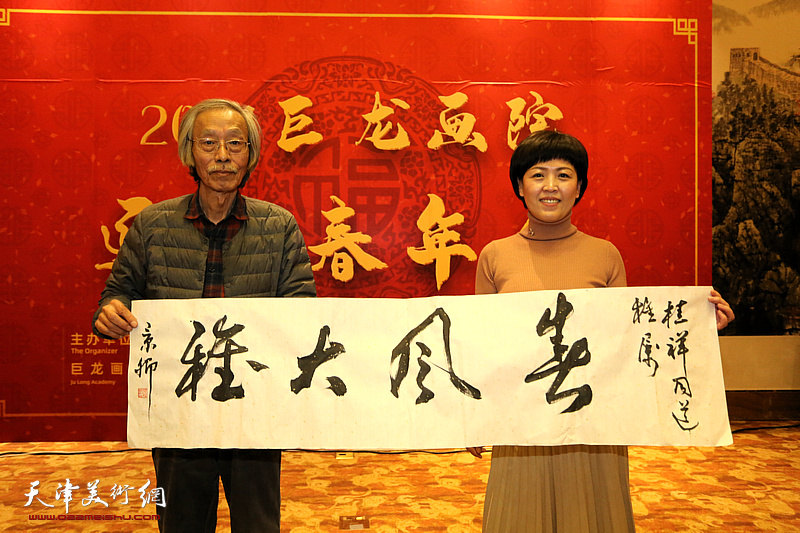 20 巨龙画院
春年
主办单位
The Organizer
巨龙画
Ju Long Academy
桂祥同道
雅属
春风大雅
京卿
天津美術網
www.022meishu.com